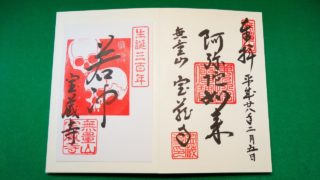 奉拝
平成廿八年二月五日
阿弥陀如来
無量山
宝蔵寺
生誕三百年
若冲
宝蔵寺
無量山